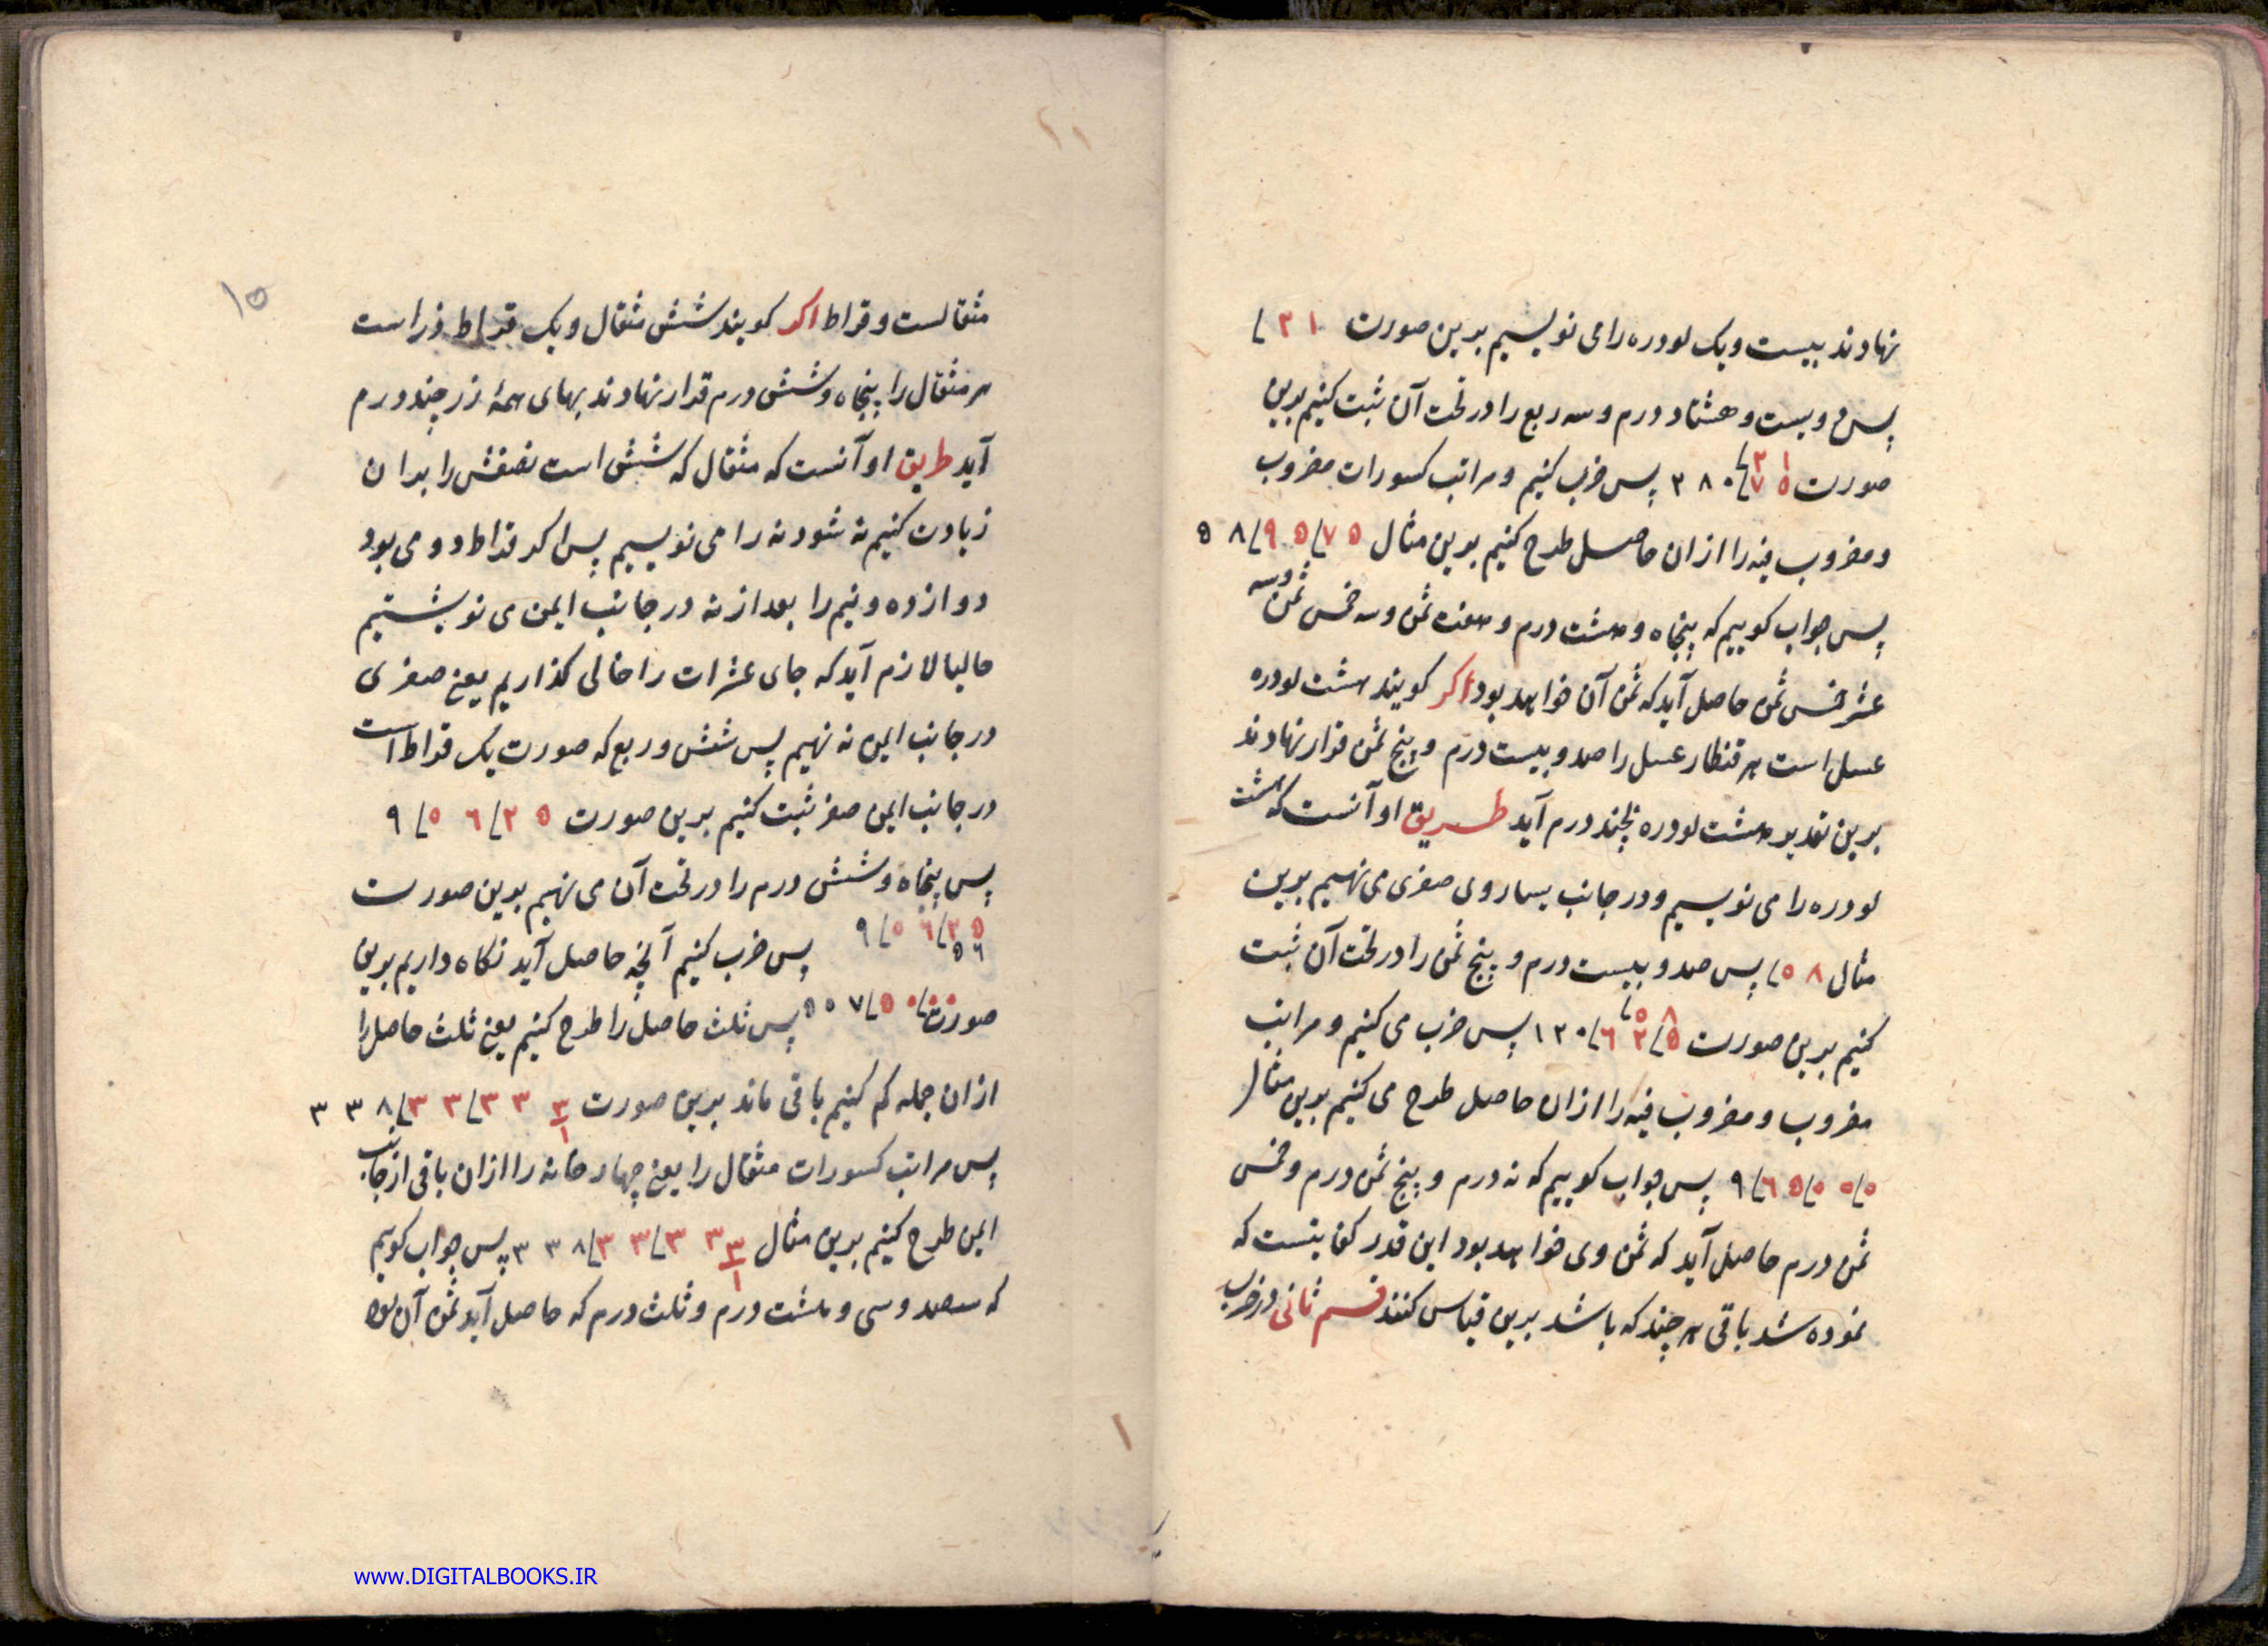 نهادند بیست ویک لودره را می نویسیم بدین صورت ۲۱
پس دویست و هشتاد درم وسه ربع را در تحت آن ثبت کنیم بدین
صورت ۲۱ ۷۵ ۲۸۰ پس ضرب کنیم و مراتب کسورات مضروب
و مضروب فیه را از ان حاصل طرح کنیم بدین مثال ۵۸ ۹۵ ۷۵
پس جواب کوییم که پنجاه و هشت درم و هفت ثمن و سه خمس ثمن وسه
عشر خمس ثمن حاصل آید که ثمن آن خواهد بود اکر کویند هشت لودره
عسل است هر قنطار عسل را صد و بیست درم و پنج ثمن قرار نهادند
برین تقدیر هشت لودره بچند درم آید طریق او آنست که هشت
لودره را می نویسیم و در جانب یسار وی صفری می نهیم بدین
مثال ۰۸ پس صد و بیست درم و پنج ثمن را در تحت آن ثبت
کنیم بدین صورت ۰۸ ۱۲۰ ۶۲ ۵ پس ضرب می کنیم و مراتب
مضروب و مضروب فیه را از ان حاصل طرح می کنیم بدین مثال
۹ ۶۵ ۰۰ ۰ پس جواب کوییم که نه درم و پنج ثمن درم و خمس
ثمن درم حاصل آید که ثمن وی خواهد بود این قدر کفایتست که
نموده شد باقی هر چند که باشد برین قیاس کنند قسم ثانی در ضرب
۱۵
مثقالست و قراط اکر کویند شش مثقال و یک قراط زر است
هر مثقال را پنجاه و شش درم قرار نهادند بهای همهٔ زر چند درم
آید طریق او آنست که مثقال که شش است نصفش را بدان
زیادت کنیم نه شود نه را می نویسیم پس اکر قراط دو می بود
دوازده و نیم را بعد از نه در جانب ایمن می نوشتیم
حالیا لازم آید که جای عشرات را خالی کذاریم یعنی صفری
در جانب ایمن نه نهیم پس شش و ربع که صورت یک قراط است
در جانب ایمن صفر ثبت کنیم بدین صورت ۹ ۰۶ ۲۵
پس پنجاه و شش درم را در تحت آن می نهیم بدین صورت
۹ ۰۶ ۲۵ ۵۶ پس ضرب کنیم آنچه حاصل آید نکاه داریم بدین
صورت ۵۰۷ ۵۰ ۰۰ پس ثلث حاصل را طرح کنیم یعنی ثلث حاصل را
از ان جمله کم کنیم باقی ماند بدین صورت ۳۳۸ ۳۳ ۳۳ ۱/۳
پس مراتب کسورات مثقال را یعنی چهار خانه را از ان باقی از جانب
ایمن طرح کنیم بدین مثال ۳۳۸ ۳۳ ۳۳ ۱/۳ پس جواب کوییم
که سیصد و سی و هشت درم و ثلث درم که حاصل آید ثمن آن بود
www.DIGITALBOOKS.IR